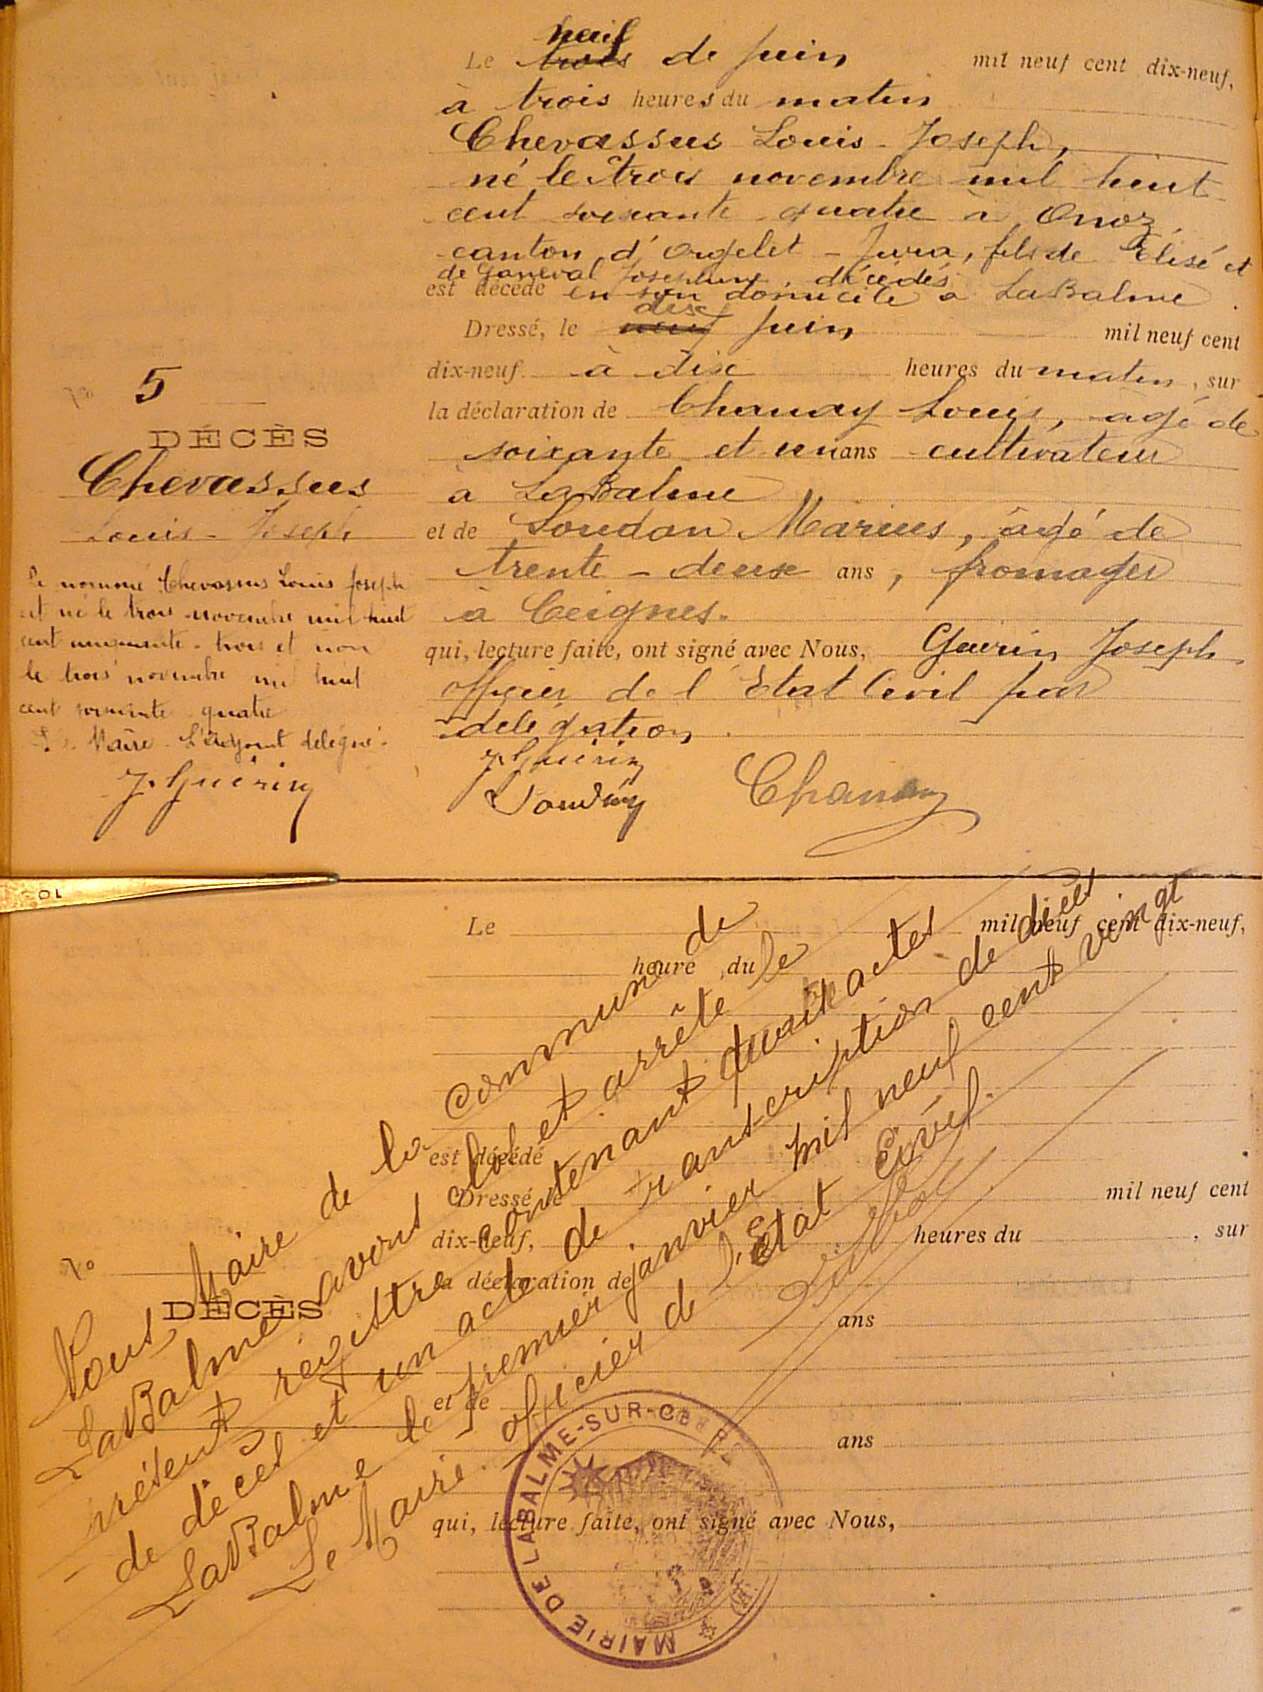 Le neuf de juin mil neuf cent dix-neuf,
à trois heures du matin
Chevassus Louis-Joseph,
né le trois novembre mil huit
cent soixante quatre à Onoz,
canton d'Orgelet - Jura, fils de Élisé et
de Ganeval Joséphine, décédés
est décédé en son domicile à LaBalme
Dressé, le dix juin mil neuf cent
dix-neuf à dix heures du matin, sur
la déclaration de Chanay Louis, agé de
soixante et un ans cultivateur
à LaBalme
et de Soudan Marius, âgé de
trente-deux ans, fromager
à Ceignes.
qui, lecture faite, ont signé avec Nous, Guérin Joseph
officier de l'Etat Civil par
délégation.
J. Guérin
Soudan Chanay
No 5
DÉCÈS
Chevassus
Louis-Joseph
Le nommé Chevassus Louis Joseph
est né le trois novembre mil huit
cent cinquante-trois et non
le trois novembre mil huit
cent soixante quatre
Le Maire L'adjoint délégué.
J. Guérin
Le mil neuf cent dix-neuf,
heure du
est décédé
Dressé, le mil neuf cent
dix-neuf, heures du , sur
la déclaration de
ans
et de
ans
qui, lecture faite, ont signé avec Nous,
No
DÉCÈS
Nous Maire de la commune de
LaBalme avons clos et arrêté le
présent registre contenant actes
de décès et un acte de transcription de décès
LaBalme le premier janvier mil neuf cent vingt
Le Maire officier de l'Etat Civil.
MAIRIE DE LABALME-SUR-CERDON